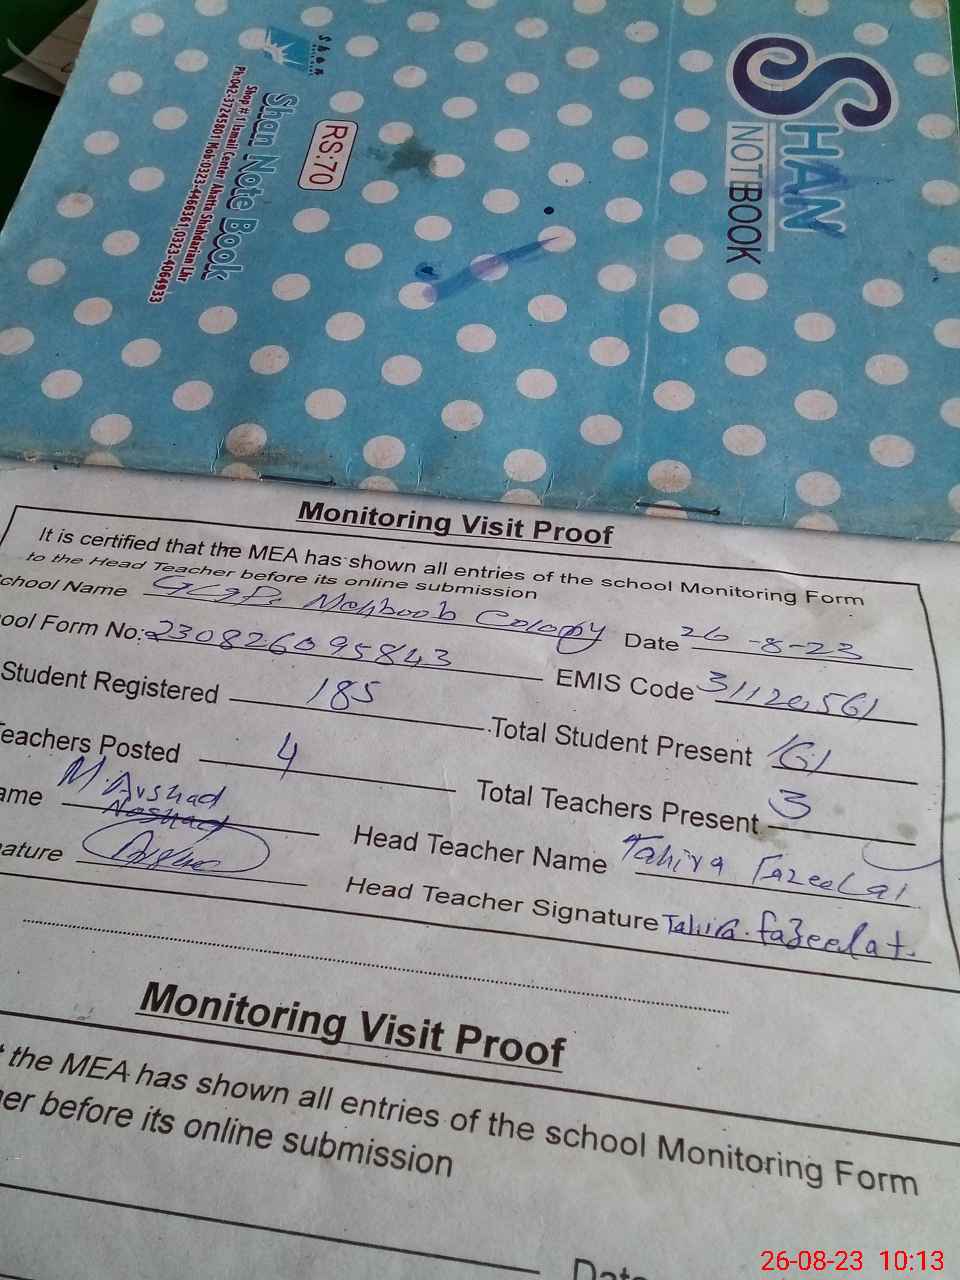 SHAN
NOTEBOOK
Shan
RS:70
Shan Note Book
Shop # 1 Ismail Center Ahatta Shahdarian Lhr
Ph:042-37245801 Mob:0323-4466361,0323-4064933
Monitoring Visit Proof
It is certified that the MEA has shown all entries of the school Monitoring Form
to the Head Teacher before its online submission
chool Name Mehboob Colony Date 26-8-23
ool Form No: 230826095843 EMIS Code 31120561
Student Registered 185 Total Student Present 161
eachers Posted 4 Total Teachers Present 3
ame M. Arshad Head Teacher Name Tahira Fazeelat
ature Head Teacher Signature Tahira. fazeelat.
Monitoring Visit Proof
the MEA has shown all entries of the school Monitoring Form
er before its online submission
Date
26-08-23 10:13